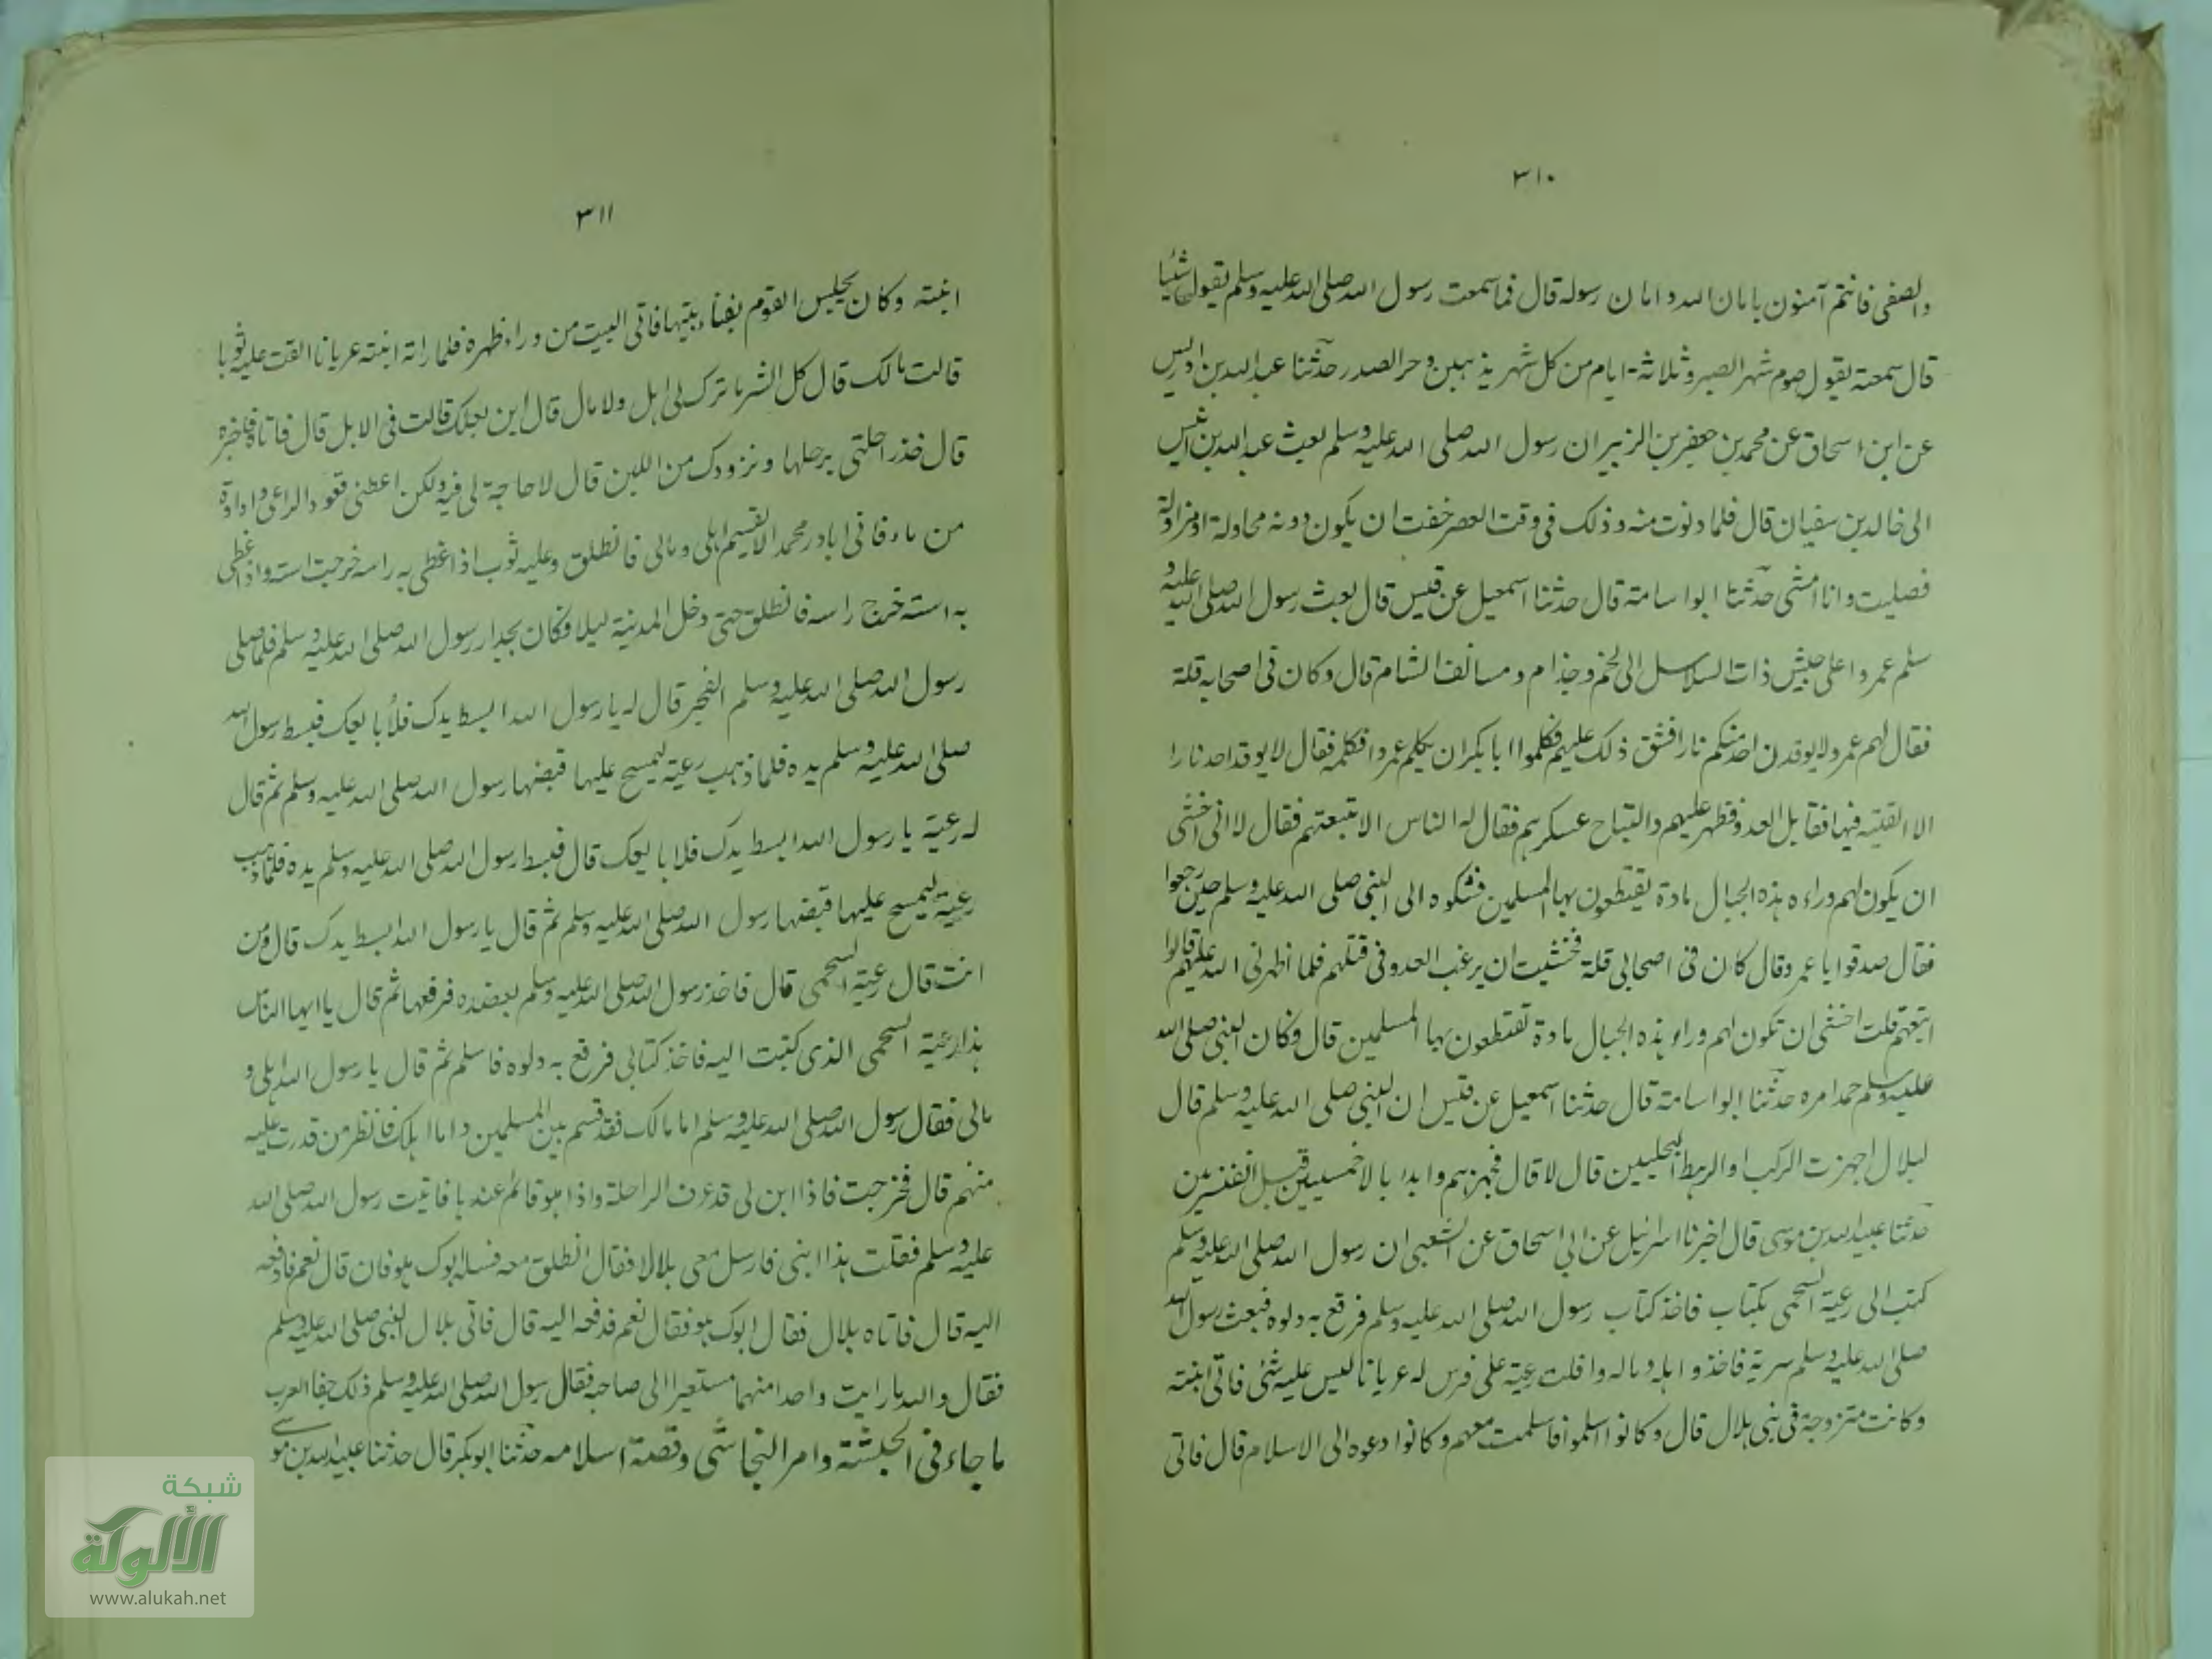 ٣١٠
والصفى فانتم آمنون بامان الله وامان رسوله قال فما سمعت رسول الله صلى الله عليه وسلم يقول شيئا
قال سمعته يقول صوم شهر الصبر وثلاثة ايام من كل شهر يذهبن وحر الصدر حدثنا عبد الله بن ادريس
عن ابن اسحاق عن محمد بن جعفر بن الزبير ان رسول الله صلى الله عليه وسلم بعث عبد الله بن انيس
الى خالد بن سفيان قال فلما دنوت منه وذلك فى وقت العصر خفت ان يكون دونه محاولة او مزاولة
فصليت وانا امشى حدثنا ابو اسامة قال حدثنا اسمعيل عن قيس قال بعث رسول الله صلى الله عليه و
سلم عمروا على جيش ذات السلاسل الى لخم وجذام ومسائف الشام قال وكان فى اصحابه قلة
فقال لهم عمرو لا يوقدن احد منكم نارا فشق ذلك عليهم فكلموا ابا بكر ان يكلم عمروا فكلمه فقال لا يوقد احد نارا
الا القيته فيها فقابل العدو فظهر عليهم واستباح عسكرهم فقال له الناس الا تتبعهم فقال لا انى اخشى
ان يكون لهم وراء هذه الجبال مادة يقتطعون بها المسلمين فشكوه الى النبى صلى الله عليه وسلم حين رجعوا
فقال صدقوا يا عمر وقال كان فى اصحابى قلة فخشيت ان يرغب العدو فى قتلهم فلما اظهرنى الله عليهم قالوا
اتبعهم قلت اخشى ان تكون لهم وراء هذه الجبال مادة تقتطعون بها المسلمين قال وكان النبى صلى الله
عليه وسلم حمد امره حدثنا ابو اسامة قال حدثنا اسمعيل عن قيس ان النبى صلى الله عليه وسلم قال
لبلال اجهزت الركب او الرهط البجليين قال لا قال فجهزهم وابدا بالاحمسيين قبل القسريين
حدثنا عبيد الله بن موسى قال اخبرنا اسرائيل عن ابى اسحاق عن الشعبى ان رسول الله صلى الله عليه وسلم
كتب الى رعية السحمى بكتاب فاخذ كتاب رسول الله صلى الله عليه وسلم فرقع به دلوه فبعث رسول الله
صلى الله عليه وسلم سرية فاخذوا اهله وماله وافلت رعية على فرس له عريانا ليس عليه شئ فاتى ابنته
وكانت متزوجة فى بنى هلال قال وكانوا اسلموا فاسلمت معهم وكانوا دعوه الى الاسلام قال فاتى
٣١١
ابنته وكان يجلس القوم بفناء بيتها فاتى البيت من وراء ظهره فلما راته ابنته عريانا القت عليه ثوبا
قالت مالك قال كل الشر ما ترك لى اهل ولا مال قال اين بعلك قالت فى الابل قال فاتاه فاخبره
قال خذ راحلتى برحلها ونزودك من اللبن قال لا حاجة لى فيه ولكن اعطنى قعود الراعى واداوة
من ماء فانى ابادر محمد الا يقسم اهلى ومالى فانطلق وعليه ثوب اذا غطى به راسه خرجت استه واذا غطى
به استه خرج راسه فانطلق حتى دخل المدينة ليلا فكان بجدار رسول الله صلى الله عليه وسلم فلما صلى
رسول الله صلى الله عليه وسلم الفجر قال له يا رسول الله ابسط يدك فلأبايعك فبسط رسول الله
صلى الله عليه وسلم يده فلما ذهب رعية ليمسح عليها قبضها رسول الله صلى الله عليه وسلم ثم قال
له رعية يا رسول الله ابسط يدك فلابايعك قال فبسط رسول الله صلى الله عليه وسلم يده فلما ذهب
رعية ليمسح عليها قبضها رسول الله صلى الله عليه وسلم ثم قال يا رسول الله ابسط يدك قال ومن
انت قال رعية السحمى قال فاخذ رسول الله صلى الله عليه وسلم بعضده فرفعها ثم قال يا ايها الناس
هذا رعية السحمى الذى كتبت اليه فاخذ كتابى فرقع به دلوه فاسلم ثم قال يا رسول الله اهلى و
مالى فقال رسول الله صلى الله عليه وسلم اما مالك فقد قسم بين المسلمين واما اهلك فانظر من قدرت عليه
منهم قال فخرجت فاذا ابن لى قد عرف الراحلة واذا هو قائم عندها فاتيت رسول الله صلى الله
عليه وسلم فقلت هذا ابنى فارسل معى بلالا فقال انطلق معه فسله ابوك هو فان قال نعم فادفعه
اليه قال فاتاه بلال فقال ابوك هو فقال نعم فدفعه اليه قال فاتى بلال النبى صلى الله عليه وسلم
فقال والله ما رايت واحدا منهما مستعبرا الى صاحبه فقال رسول الله صلى الله عليه وسلم ذلك جفا العرب
ما جاء فى الحبشة وامر النجاشى وقصة اسلامه حدثنا ابو بكر قال حدثنا عبيد الله بن موسى
شبكة
الألوكة
www.alukah.net